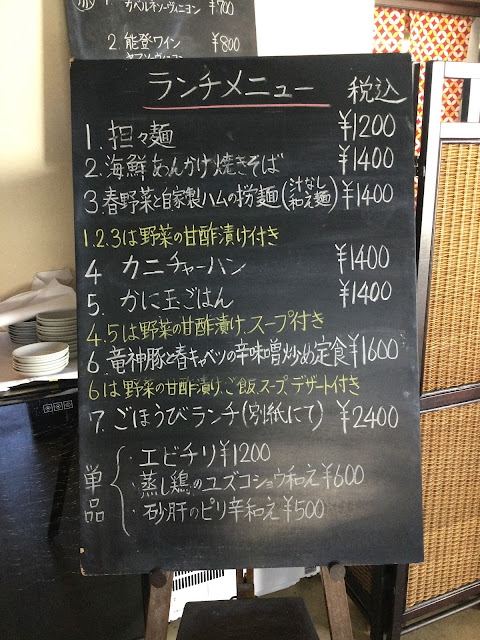 カベルネソーヴィニヨン ¥700
2. 能登ワイン ¥800
ランチメニュー 税込
1. 担々麺 ¥1200
2. 海鮮あんかけ焼きそば ¥1400
3. 春野菜と自家製ハムの拌麺(汁なし和え麺) ¥1400
1.2.3は野菜の甘酢漬け付き
4 カニチャーハン ¥1400
5. かに玉ごはん ¥1400
4.5は野菜の甘酢漬け.スープ付き
6. 竜神豚と春キャベツの辛味噌炒め定食 ¥1600
6は野菜の甘酢漬け.ご飯.スープ.デザート付き
7. ごほうびランチ(別紙にて) ¥2400
単品
・エビチリ ¥1200
・蒸し鶏のユズコショウ和え ¥600
・砂肝のピリ辛和え ¥500